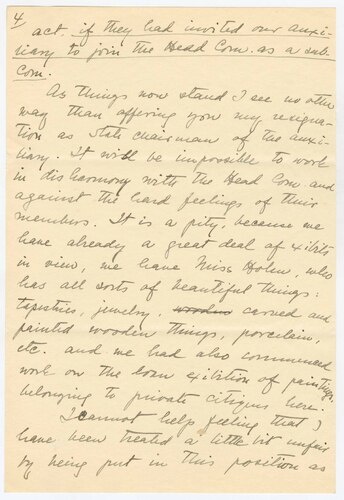 4
act. if they had invited our auxi-
liary to join the Head Com. as a sub.
Com.
As things now stand I see no other
way than offering you my resigna-
tion as State chairman of the auxi-
liary. It will be impossible to work
in disharmony with the Head Com and
against the hard feelings of their
members. It is a pity, because we
have already a great deal of exibits
in view, we have Miss Holm, who
has all sorts of beautiful things:
tapestries, jewelry, carved and
painted wooden things, porcelain,
etc. and we had also commenced
work on the loan exibition of paintings
belonging to private citizens here.
I cannot help feeling that I
have been treated a little bit unfair
by being put in this position as